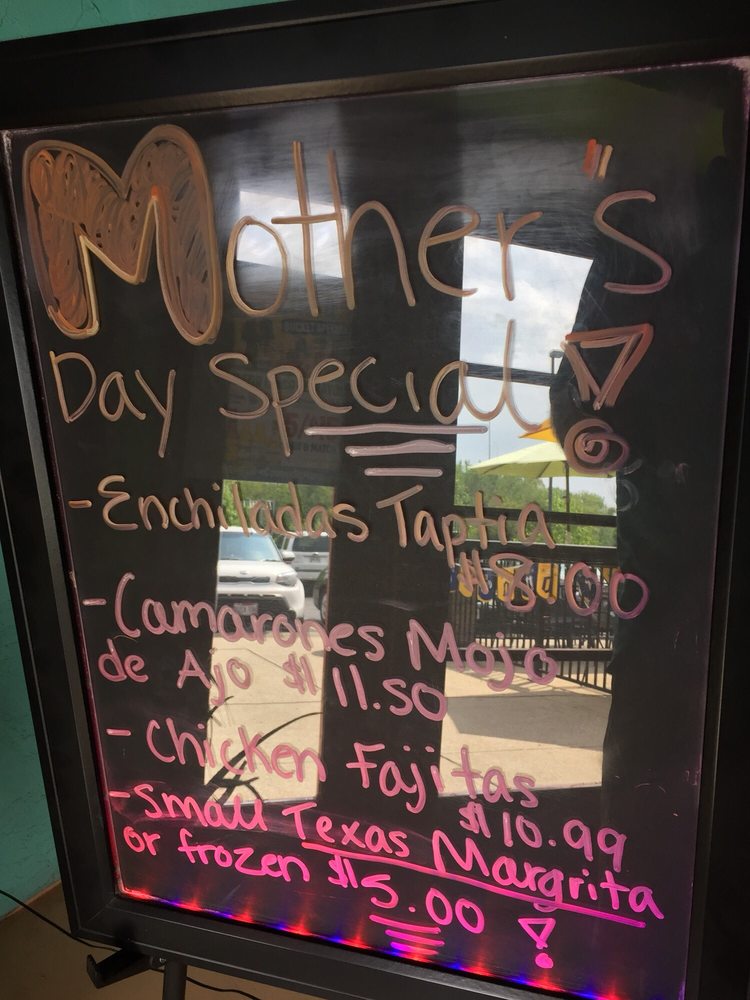 Mother"s
Day Special!
-Enchiladas Taptia
$8.00
-Camarones Mojo
de Ajo $11.50
-Chicken Fajitas
$10.99
-Small Texas Margrita
or frozen $5.00!